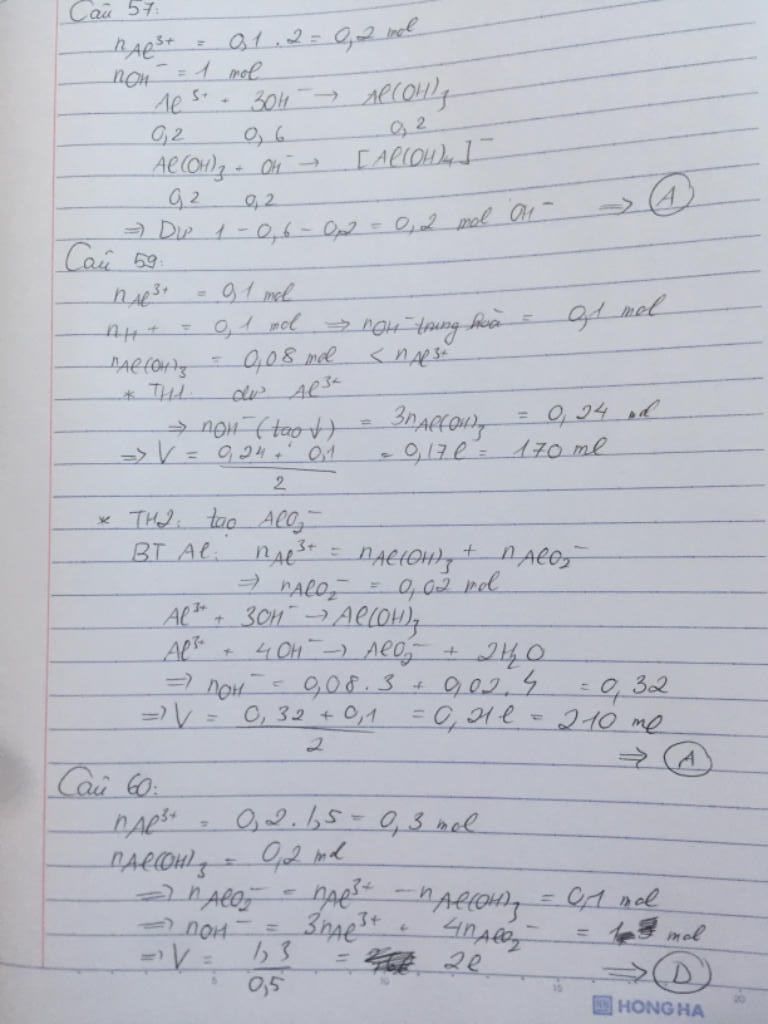 Câu 57:
nAl³⁺ = 0,1 . 2 = 0,2 mol
nOH⁻ = 1 mol
Al³⁺ + 3OH⁻ → Al(OH)₃
0,2 0,6 0,2
Al(OH)₃ + OH⁻ → [Al(OH)₄]⁻
0,2 0,2
⇒ Dư 1 - 0,6 - 0,2 = 0,2 mol OH⁻ ⇒ A
Câu 59:
nAl³⁺ = 0,1 mol
nH+ = 0,1 mol ⇒ nOH⁻ trung hoà = 0,1 mol
nAl(OH)₃ = 0,08 mol < nAl³⁺
* TH1. dư Al³⁺
⇒ nOH⁻ (tạo ↓) = 3nAl(OH)₃ = 0,24 mol
⇒ V = 0,24 + 0,1 = 0,17 l = 170 ml
2
* TH2: tạo AlO₂⁻
BT Al: nAl³⁺ = nAl(OH)₃ + nAlO₂⁻
⇒ nAlO₂⁻ = 0,02 mol
Al³⁺ + 3OH⁻ → Al(OH)₃
Al³⁺ + 4OH⁻ → AlO₂⁻ + 2H₂O
⇒ nOH⁻ = 0,08.3 + 0,02.4 = 0,32
⇒ V = 0,32 + 0,1 = 0,21 l = 210 ml
2
⇒ A
Câu 60:
nAl³⁺ = 0,2.1,5 = 0,3 mol
nAl(OH)₃ = 0,2 mol
⇒ nAlO₂⁻ = nAl³⁺ - nAl(OH)₃ = 0,1 mol
⇒ nOH⁻ = 3nAl³⁺ + 4nAlO₂⁻ = 1 mol
⇒ V = 1,3 = 2l ⇒ D
0,5
5 10 15 20
HONG HA